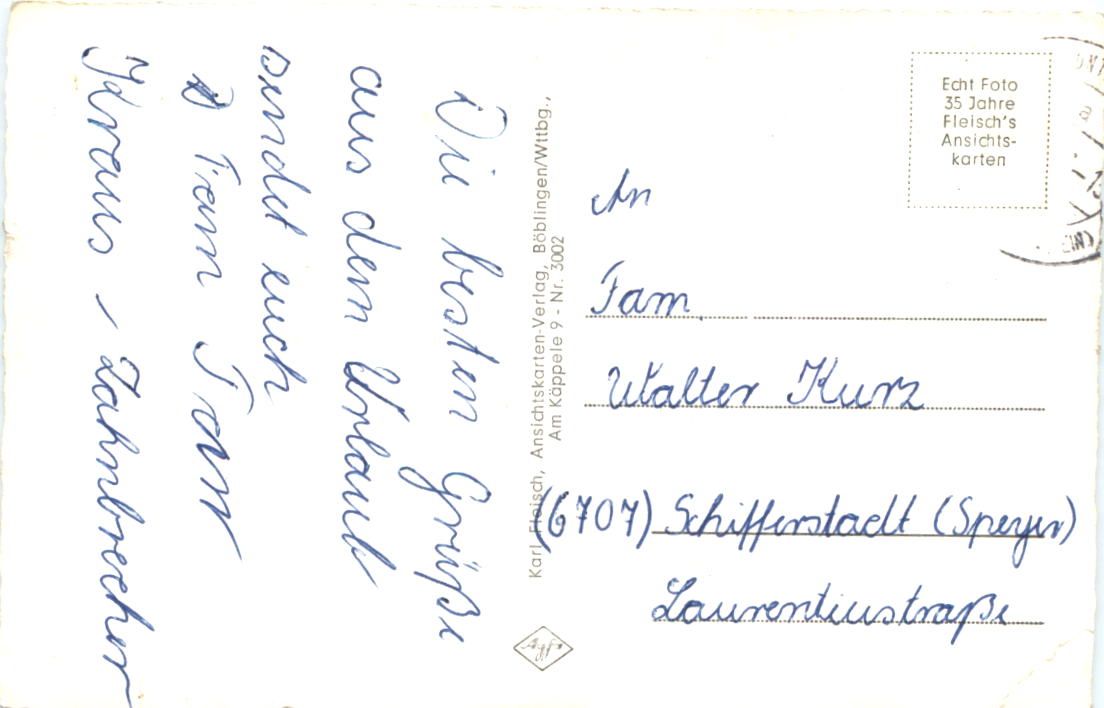 Die besten Grüße
aus dem Urlaub
sendet euch
Fam
Kraus - Zahnbrecher
Karl Fleisch, Ansichtskarten-Verlag, Böblingen/Wttbg.,
Am Käppele 9 - Nr. 3002
Agfa
Echt Foto
35 Jahre
Fleisch's
Ansichts-
karten
An
Fam.
Walter Kurz
(6707) Schifferstadt (Speyer)
Laurentiustraße